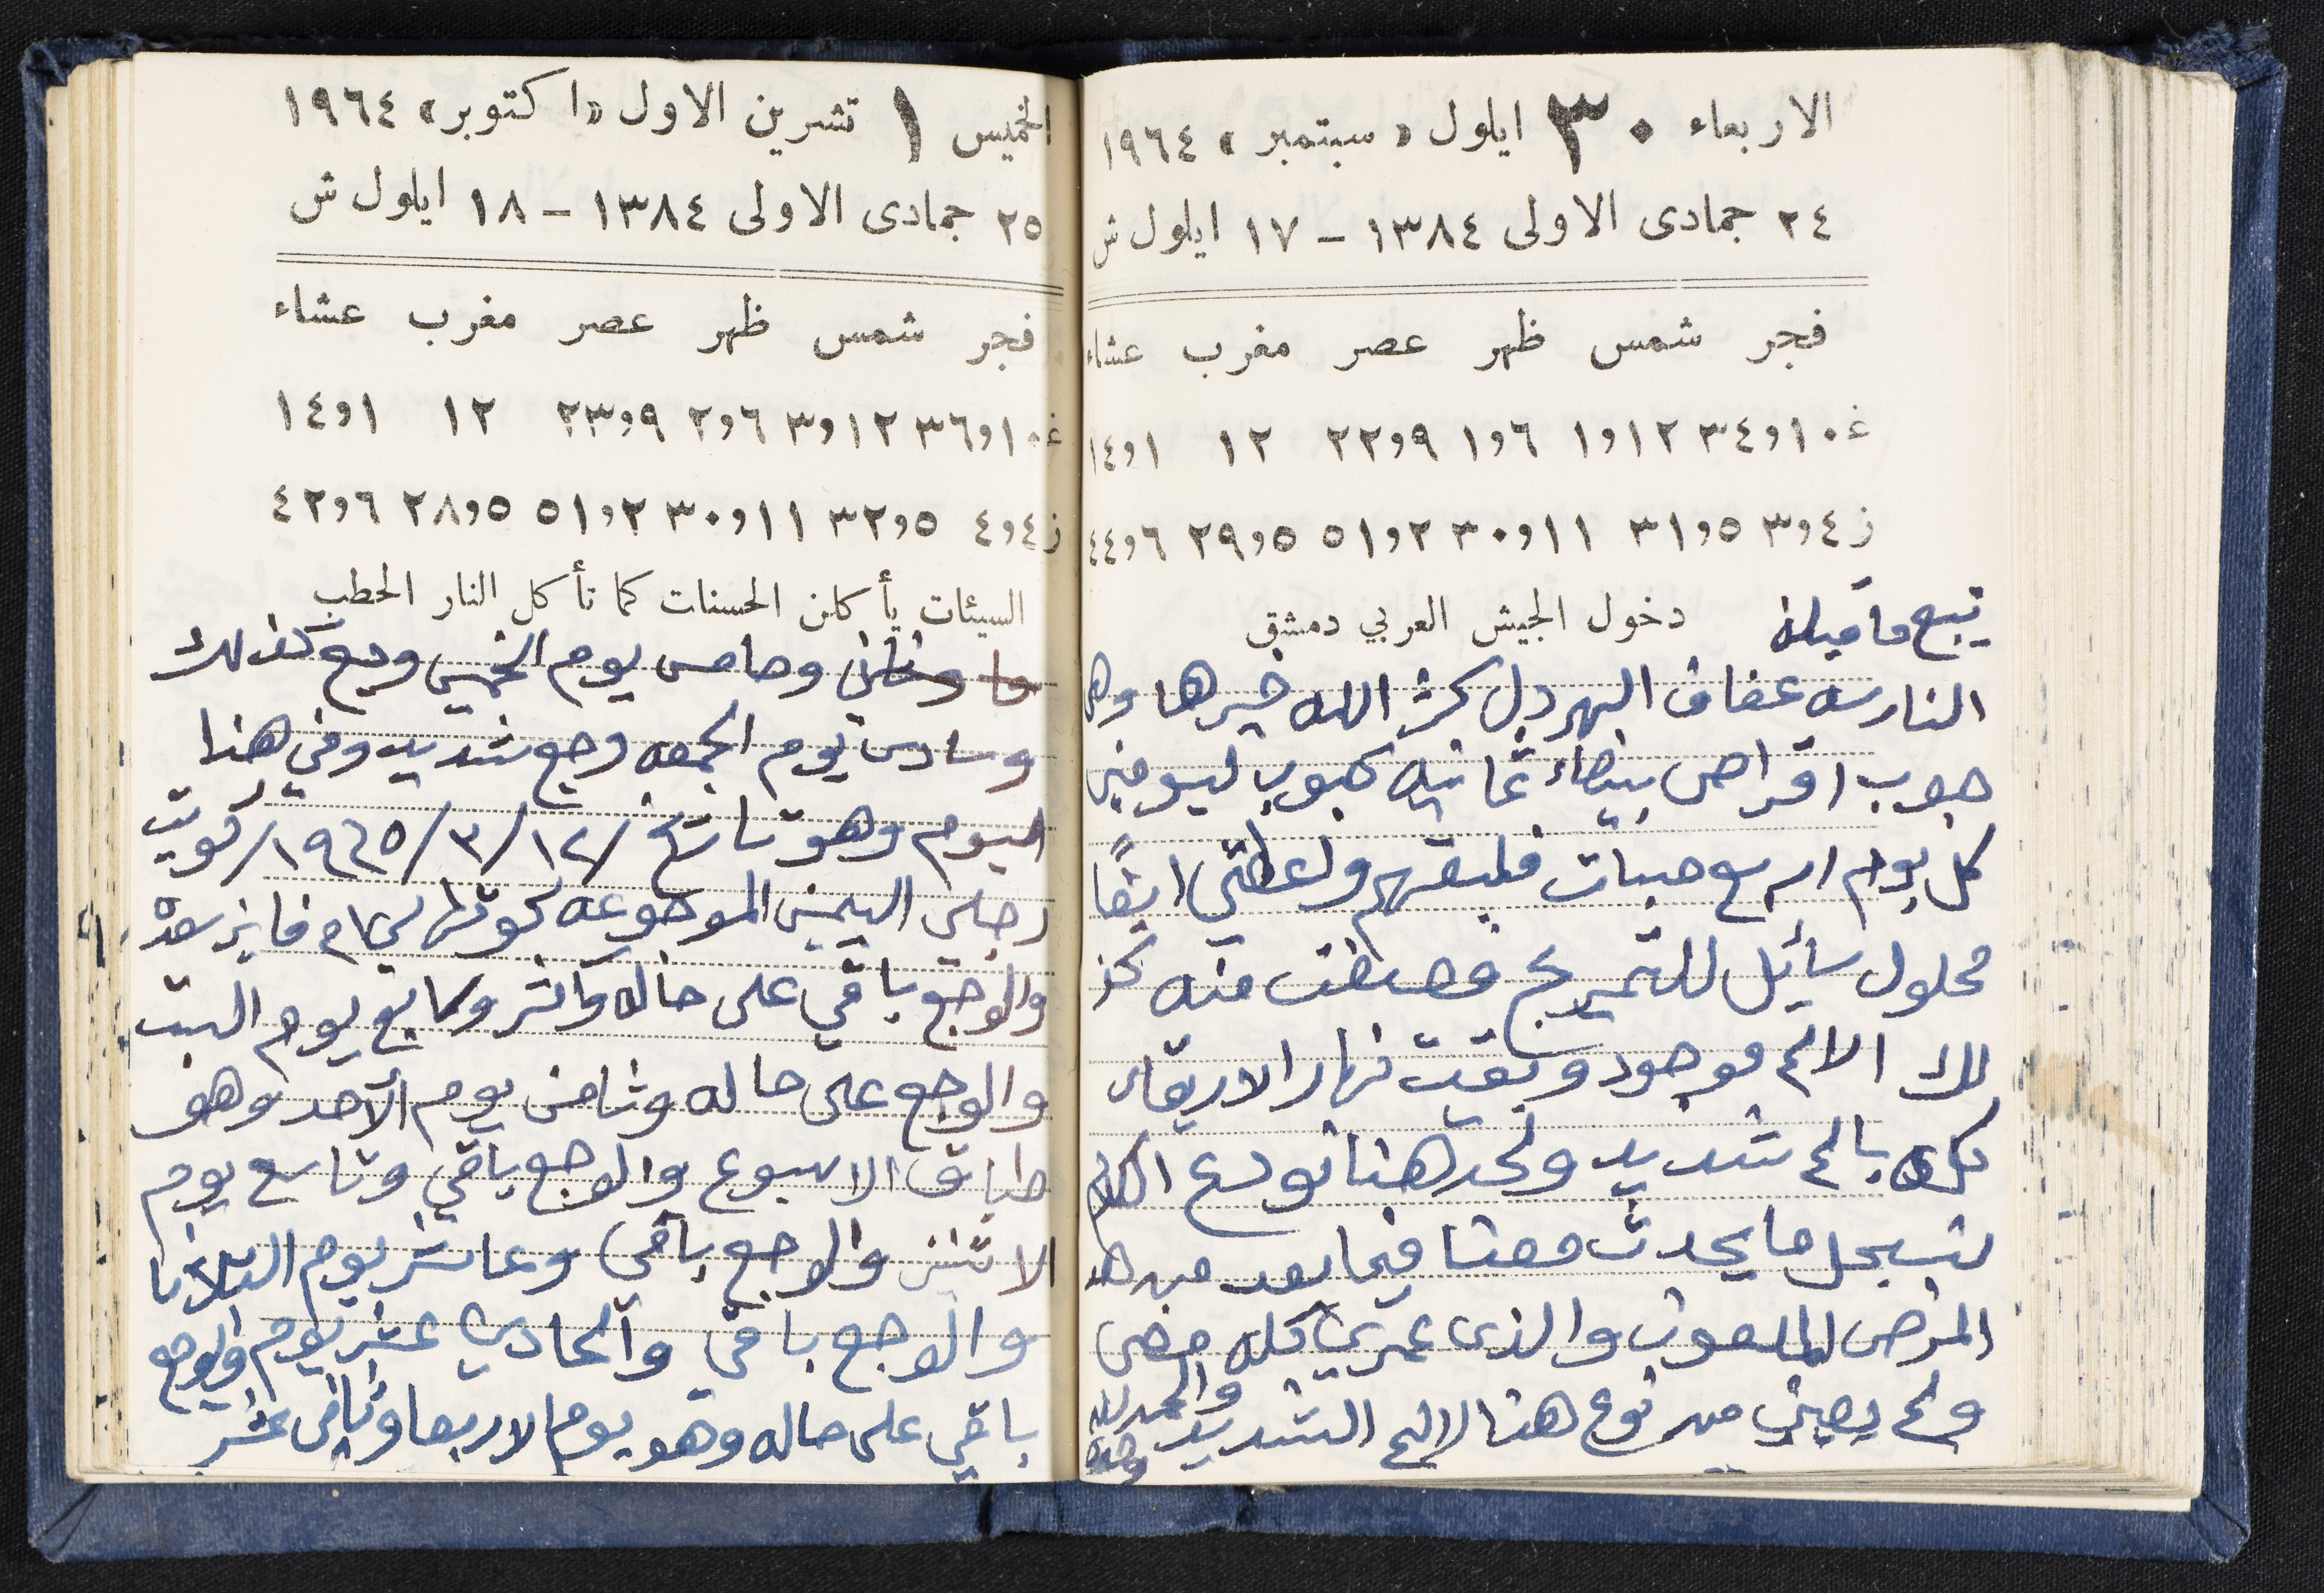 الاربعاء ٣٠ ايلول «سبتمبر» ١٩٦٤
٢٤ جمادى الاولى ١٣٨٤ – ١٧ ايلول ش
فجر شمس ظهر عصر مغرب عشاء
غ ١٠و٣٤ ١٢و١ ٦و١ ٩و٢٢ ١٢ ١و١٤
ز ٤و٣ ٥و٣١ ١١و٣٠ ٢و٥١ ٥و٢٩ ٦و٤٤
يتبع ما قبله دخول الجيش العربي دمشق
عفاف البهردل كثر الله خيرها وهي
حبوب اقراص بيضاء ثمانيه حبوب ليومين
كل يوم اربع حبات فلبقتهم واعطتني ايضًا
محلول سائل للتمريخ منه كذ
لك الالم موجود وبقيت نهار الاربعاء
كله بالم شديد ولحد هنا نودع الكلام
نسجل ما يحدث معنا فيما بعد من هذ
المرض الملعون والذي عمري كله مضى
ولم يصبني من نوع هذا الالم الشديد والحمد لله وحده
الخميس ١ تشرين الاول «اكتوبر» ١٩٦٤
٢٥ جمادى الاولى ١٣٨٤ – ١٨ ايلول ش
فجر شمس ظهر عصر مغرب عشاء
غ ١٠و٣٦ ١٢و٣ ٦و٢ ٩و٢٣ ١٢ ١و١٤
ز ٤و٤ ٥و٣٢ ١١و٣٠ ٢و٥١ ٥و٢٨ ٦و٤٢
السيئات يأكلن الحسنات كما تأكل النار الحطب
وخامس يوم الخميس وجع كذلك
وسادس يوم الجمعه وجع شديد وفي هذا
اليوم وهو تاريخ /١٢/٣/١٩٦٥/ كويت
رجلي اليمين الموجوعه كوتها لي ام فايز سعده
والوجع باقي على حاله واكثر وسابع يوم السبت
والوجع على حاله وثامن يوم الأحد وهو
طباق الاسبوع والوجع باقي وتاسع يوم
الاثنين والوجع باقي وعاشر يوم الثلاثا
والوجع باقي والحادي عشر يوم والوجع
باقي على حاله وهو يوم الاربعا وثاني عشر